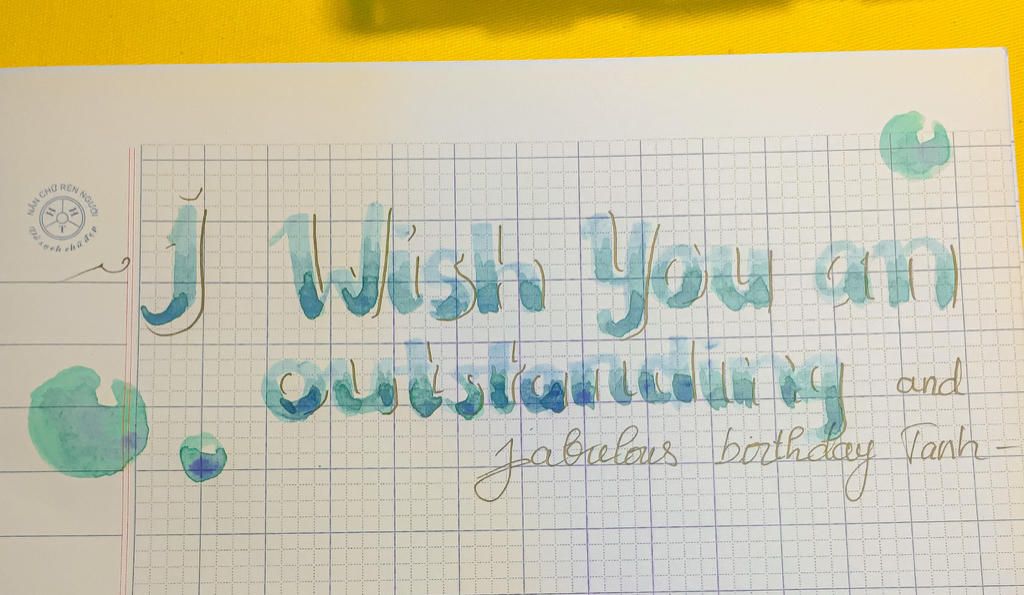 NẮN CHỮ RÈN NGƯỜI
HHT
Vở sạch chữ đẹp
I Wish You an
outstanding and
fabulous birthday Tanh-